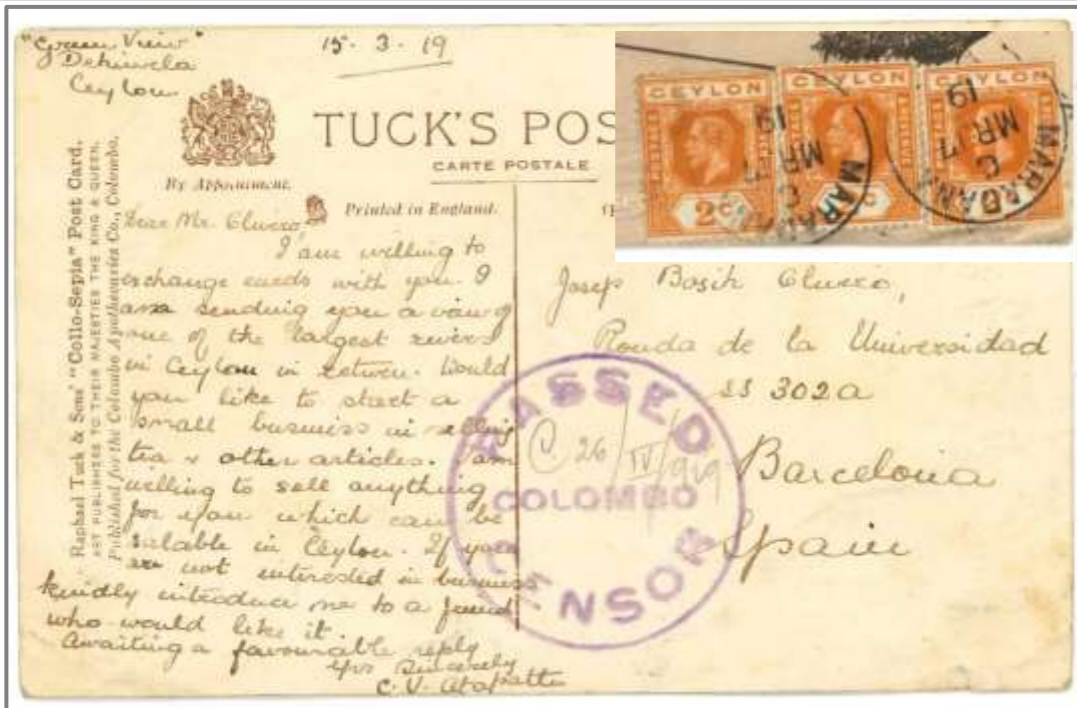 "Green View"
Dehiwela
Ceylon
15. 3. 19
TUCK'S POS
CARTE POSTALE
By Appointment.
Printed in England.
Raphael Tuck & Sons' "Collo-Sepia" Post Card.
ART PUBLISHERS TO THEIR MAJESTIES THE KING & QUEEN.
Published for the Colombo Apothecaries Co., Colombo.
Dear Mr. Clivero
I am willing to
exchange cards with you. I
am sending you a view of
one of the largest rivers
in Ceylon in return. Would
you like to start a
small business in selling
tea & other articles. I am
willing to sell anything
for you which can be
salable in Ceylon. If you
are not interested in business
kindly introduce me to a friend
who would like it.
Awaiting a favourable reply
Yrs Sincerely
C. V. Atapattu
Josep Bosih Clivero,
Ronda de la Universidad
Barcelona
Spain
PASSED
C 26/IV/919
COLOMBO
CENSOR
CEYLON
POSTAGE
2C
CEYLON
C
CEYLON
MARADANA
C
MR 17
19
MARADANA
C
MR 17
19